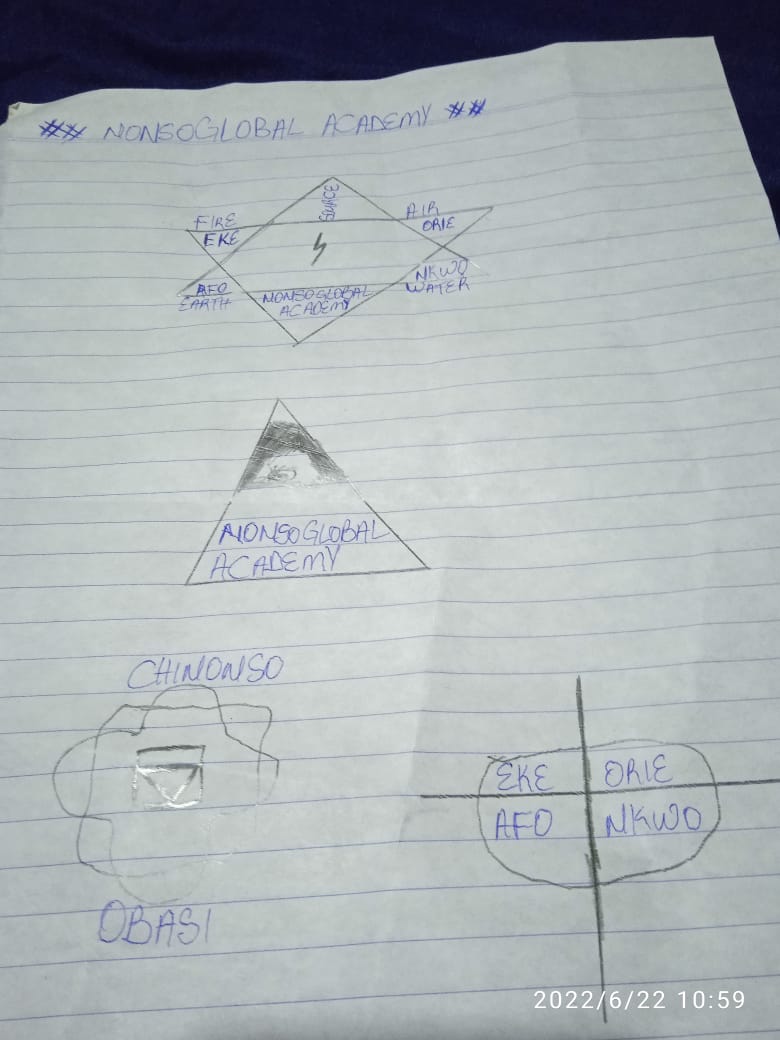 ## NONSOGLOBAL ACADEMY ##
SOURCE
FIRE
EKE
AIR
ORIE
AFO
EARTH
NONSOGLOBAL
ACADEMY
NKWO
WATER
NONSOGLOBAL
ACADEMY
CHINONSO
OBASI
EKE ORIE
AFO NKWO
2022/6/22 10:59